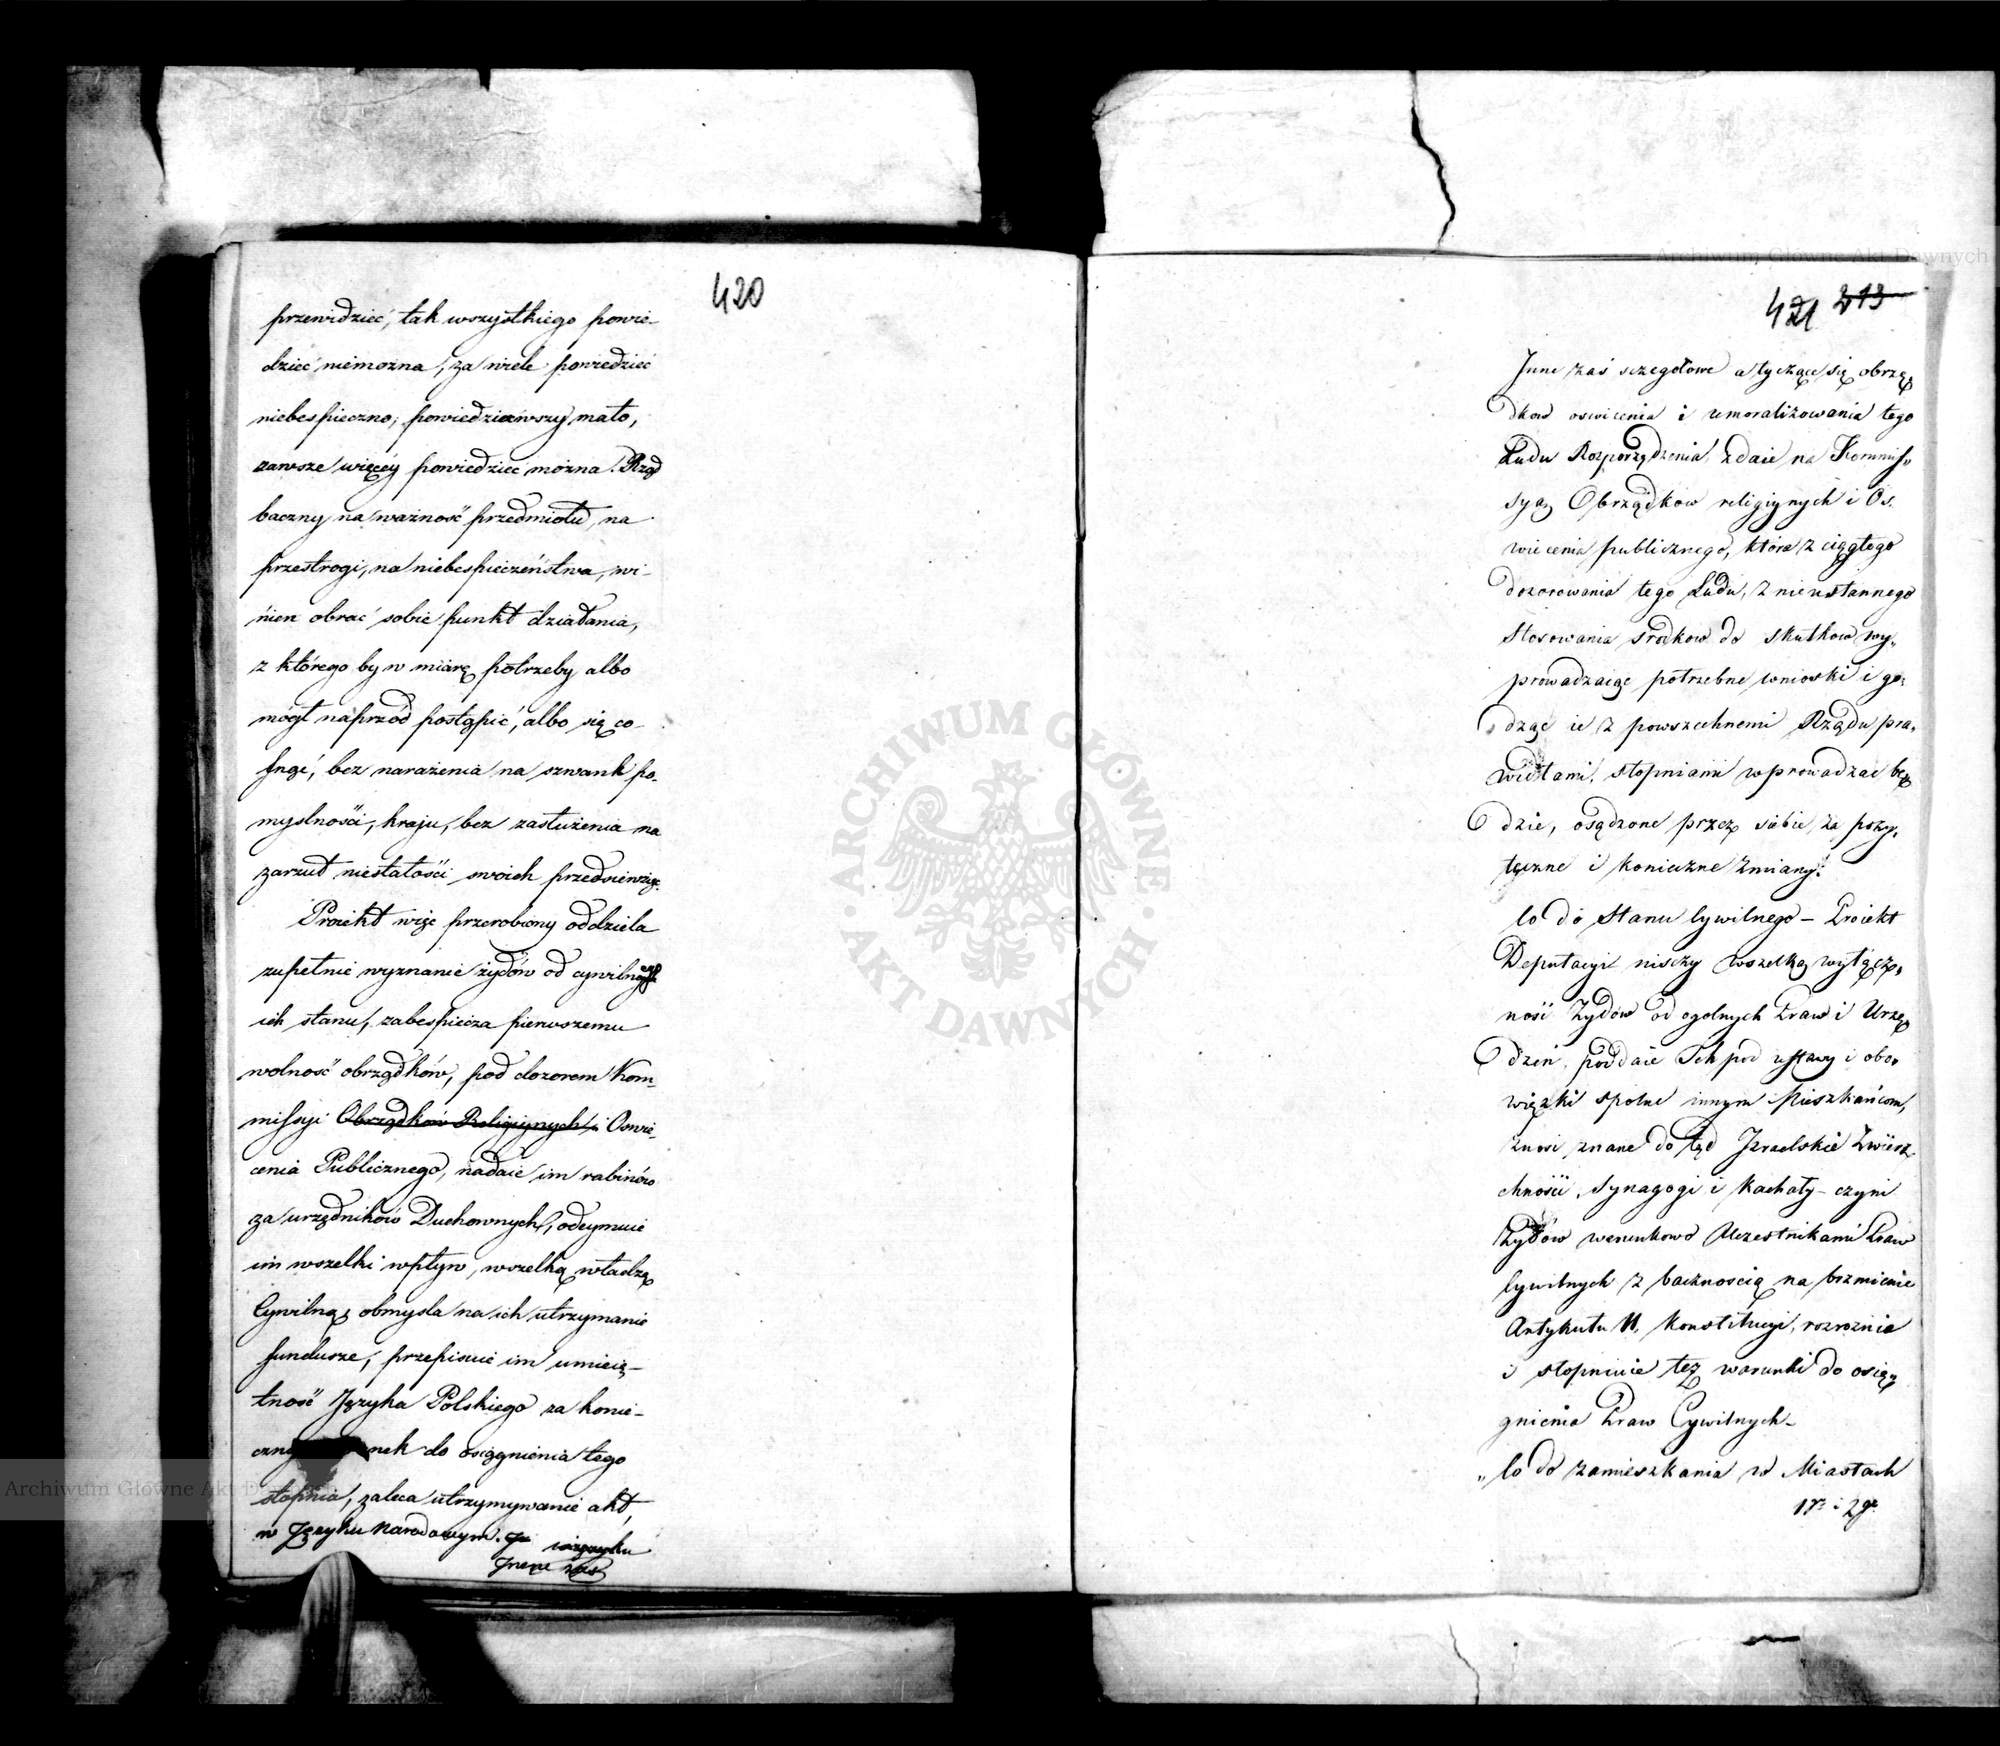 420
przewidzieć, tak wszystkiego powie-
dzieć niemożna, za wiele powiedzieć
niebespieczno; powiedziawszy mało,
zawsze więcéy powiedzieć można. Rząd
baczny na ważność przedmiotu, na
przestrogi, na niebespieczeństwa, wi-
nien obrać sobie punkt działania,
z którego by w miarę potrzeby albo
mógł naprzód postąpić, albo się co-
fnąć, bez narażenia na szwank po-
myslności, kraju, bez zasłużenia na
zarzut niestałości swoich przedsiewzięć.
Proiekt więc przerobiony oddziela
zupełnie wyznanie żydów od cywilnego
ich stanu, zabespiecza pierwszemu
wolność obrządków, pod dozorem Kom-
missyi Obrządków Religiynych i Oswie-
cenia Publicznego, nadaie im rabinów
za urzędników Duchownych, odeymuie
im wszelki wpływ, wszelką władzę
Cywilną, obmysla na ich utrzymanie
fundusze, przepisuie im umieię-
tność Języka Polskiego za konie-
czny nek do osiągnienia tego
stopnia, zaleca utrzymywanie akt,
w Języku Narodowym.
Inne zaś
421 213
Inne zaś sczegołowe a tyczące się obrzą,
dkow oswicenia i umoralizowania tego
Ludu Rozporządzenia, zdaie na Kommis,,
syą Obrządkow religiynych i Os,
wiecenia publicznego, która z ciągłego
dozorowania tego Ludu, z nieustannego
Stosowania srodkow do skutkow wy,,
prowadzaiąc potrzebne wnioski i go,
dząc ie z powszechnemi Rządu pra,
widłami, stopniami wprowadzać bę,
dzie, osądzone przez siebie za poży,
teczne i konieczne zmiany.
Co do Stanu Cywilnego — Proiekt
Deputacyi nisczy wszelką wyłącz,,
ność Żydów od ogolnych Praw i Urzą,
dzeń, poddaie Ich pod ustawy i obo,
wiązki spolne innym Mieszkańcom,
znosi znane do tąd Izraelskie Zwierz,
chności, Synagogi i Kachały — czyni
Żydów warunkowo Uczestnikami Praw
Cywilnych z bacznoscią na brzmienie
Artykułu 11, Konstitucyi, rozroznia
i stopniuie też warunki do osią,,
gnienia Praw Cywilnych —
„Co do zamieszkania w Miastach